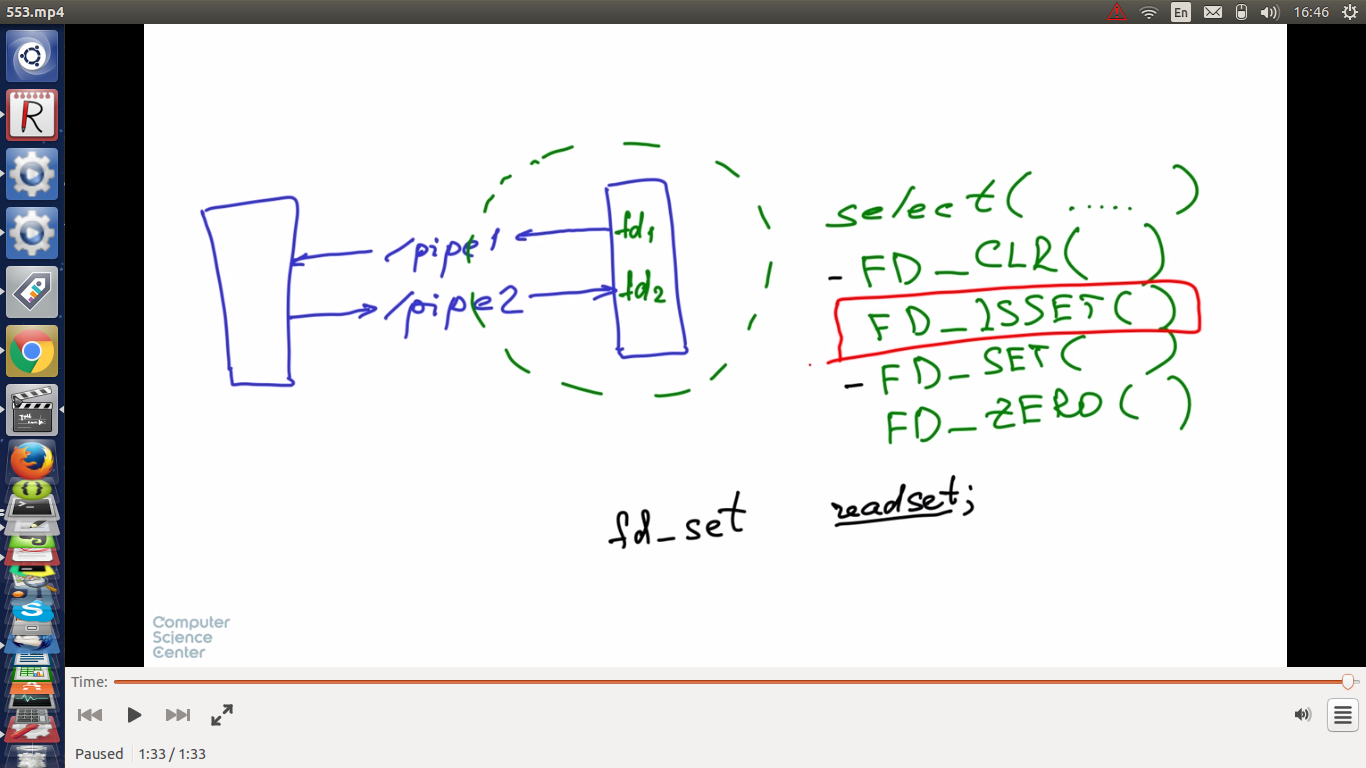 553.mp4
En
16:46
select( ..... )
/pipe1
fd1
- FD_CLR( )
/pipe2
fd2
FD_ISSET( )
- FD_SET( )
FD_ZERO( )
fd_set readset;
Computer
Science
Center
Time:
Paused 1:33 / 1:33